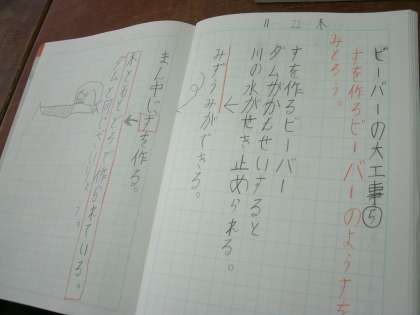 日 22 木
ビーバーの大工事⑤
すを作るビーバーのようすを
みとろう。
すを作るビーバー
ダムがかんせいすると
川の水がせき止められる。
みずうみができる。
まん中にすを作る。
木と
ダムと同じ